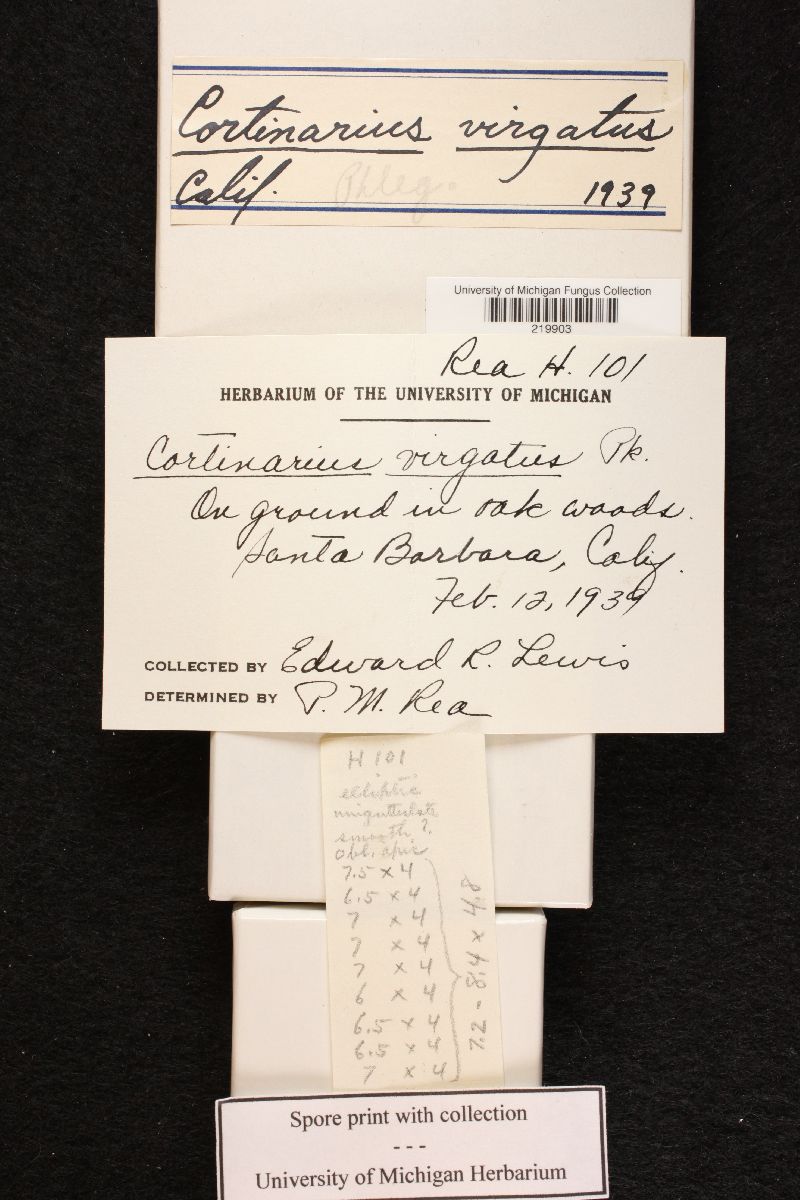 Cortinarius virgatus
Calif. Phleg. 1939
University of Michigan Fungus Collection
219903
Rea H. 101
HERBARIUM OF THE UNIVERSITY OF MICHIGAN
Cortinarius virgatus Pk.
On ground in oak woods.
Santa Barbara, Calif.
Feb. 12, 1939
COLLECTED BY Edward R. Lewis
DETERMINED BY P. M. Rea
H 101
elliptic
uniguttulate
smooth ?.
obl. apic
7.5 x 4
6.5 x 4
7 x 4
7 x 4
7 x 4
6 x 4
6.5 x 4
6.5 x 4
7 x 4
7.2 - 8.4 x 4.8
Spore print with collection
- - -
University of Michigan Herbarium